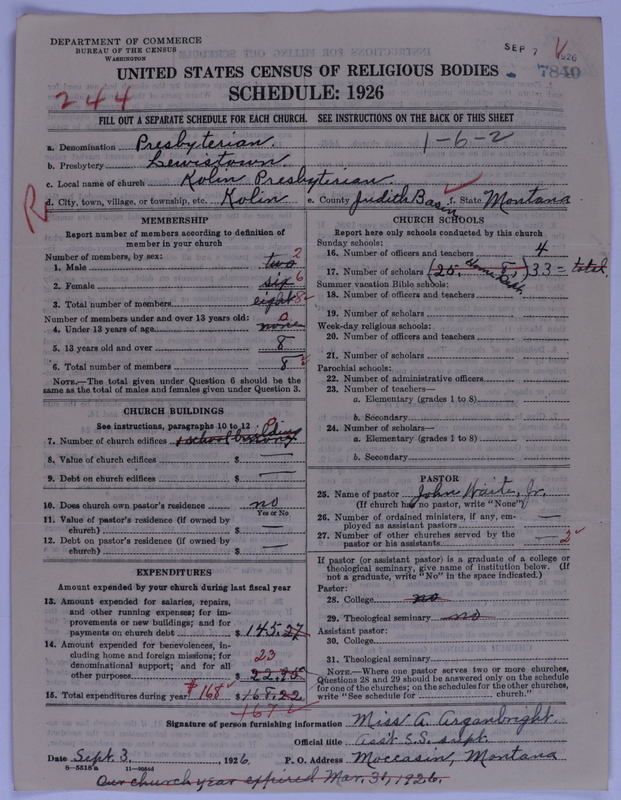 DEPARTMENT OF COMMERCE
BUREAU OF THE CENSUS
WASHINGTON
SEP 7 1926
7840
UNITED STATES CENSUS OF RELIGIOUS BODIES
244
SCHEDULE: 1926
FILL OUT A SEPARATE SCHEDULE FOR EACH CHURCH. SEE INSTRUCTIONS ON THE BACK OF THIS SHEET
a. Denomination Presbyterian. 1-6-2
b. Presbytery Lewistown
c. Local name of church Kolin Presbyterian
d. City, town, village, or township, etc. Kolin e. County Judith Basin f. State Montana
R
MEMBERSHIP
Report number of members according to definition of
member in your church
Number of members, by sex:
1. Male two 2
2. Female six 6
3. Total number of members eight 8
Number of members under and over 13 years old:
4. Under 13 years of age none 0
5. 13 years old and over 8
6. Total number of members 8
NOTE.—The total given under Question 6 should be the
same as the total of males and females given under Question 3.
CHURCH BUILDINGS
See instructions, paragraphs 10 to 12
7. Number of church edifices 1 school building 0
8. Value of church edifices $ —
9. Debt on church edifices $ —
10. Does church own pastor's residence no
Yes or No
11. Value of pastor's residence (if owned by
church) $ —
12. Debt on pastor's residence (if owned by
church) $ —
EXPENDITURES
Amount expended by your church during last fiscal year
13. Amount expended for salaries, repairs,
and other running expenses; for im-
provements or new buildings; and for
payments on church debt $ 145.27
14. Amount expended for benevolences, in-
cluding home and foreign missions; for
denominational support; and for all
other purposes $ 22.95 23
15. Total expenditures during year $168 $ 168.22
167
CHURCH SCHOOLS
Report here only schools conducted by this church
Sunday schools:
16. Number of officers and teachers 4
17. Number of scholars (25. Home Dept. 8) 33 = total.
Summer vacation Bible schools:
18. Number of officers and teachers
19. Number of scholars
Week-day religious schools:
20. Number of officers and teachers
21. Number of scholars
Parochial schools:
22. Number of administrative officers
23. Number of teachers—
a. Elementary (grades 1 to 8)
b. Secondary
24. Number of scholars—
a. Elementary (grades 1 to 8)
b. Secondary
PASTOR
25. Name of pastor John Waite, Jr.
(If church has no pastor, write "None")
26. Number of ordained ministers, if any, em-
ployed as assistant pastors —
27. Number of other churches served by the
pastor or his assistants — 2
If pastor (or assistant pastor) is a graduate of a college or
theological seminary, give name of institution below. (If
not a graduate, write "No" in the space indicated.)
Pastor:
28. College no
29. Theological seminary no
Assistant pastor:
30. College
31. Theological seminary
NOTE.—Where one pastor serves two or more churches,
Questions 28 and 29 should be answered only on the schedule
for one of the churches; on the schedules for the other churches,
write "See schedule for church."
Signature of person furnishing information Miss A. Arganbright
Official title Ass't S.S. supt.
Date Sept. 3, 1926 P. O. Address Moccasin, Montana
8—5518 a
Our church year expired Mar. 31, 1926.